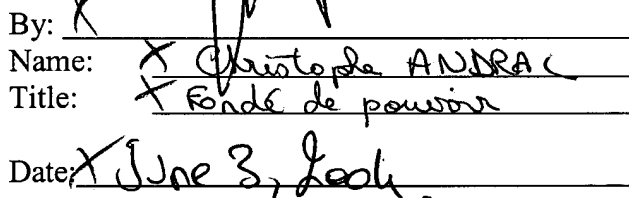 By: X
Name: X Christophe ANDRAC
Title: X Fondé de pouvoir
Date: X June 3,